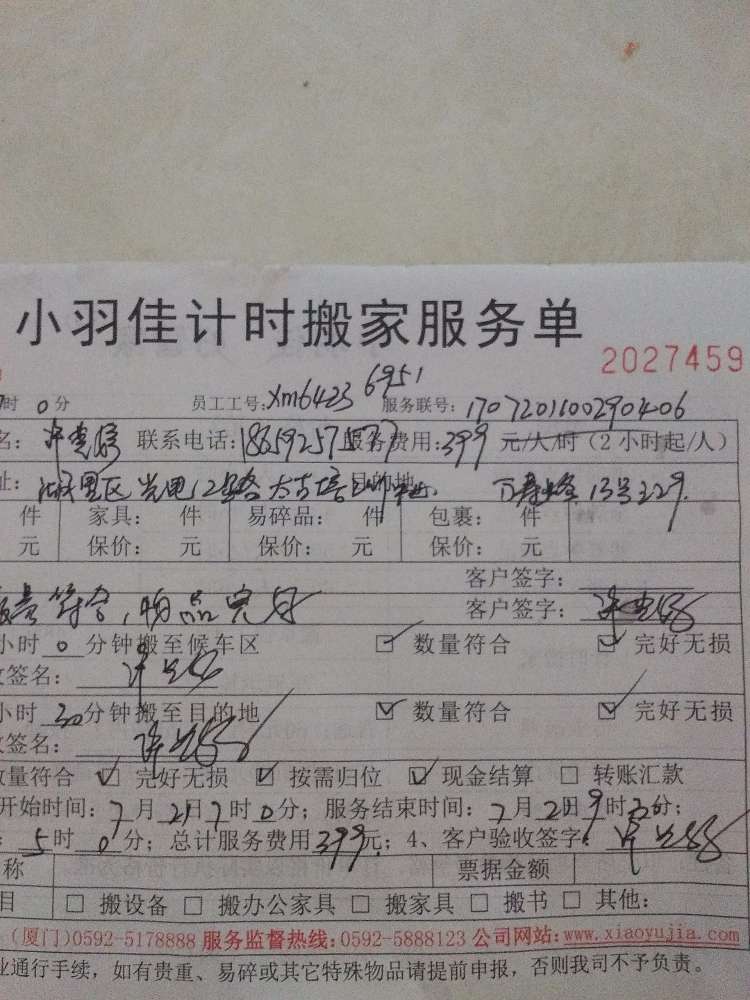 小羽佳计时搬家服务单
2027459
时 0分 员工工号:xm6423 6951 服务联号:1707201100290406
名: 联系电话:18659257577 服务费用:399 元/人/时(2小时起/人)
址:湖里区 目的地 13号
件 家具: 件 易碎品: 件 包裹: 件
元 保价: 元 保价: 元 保价: 元
客户签字:
符合,物品完好 客户签字:
小时 0 分钟搬至候车区 ☑ 数量符合 ☑ 完好无损
收签名:
小时 30 分钟搬至目的地 ☑ 数量符合 ☑ 完好无损
收签名:
数量符合 ☑ 完好无损 ☑ 按需归位 ☑ 现金结算 □ 转账汇款
开始时间:7月21日7时0分;服务结束时间:7月21日9时30分;
:5时0分;总计服务费用399元;4、客户验收签字:
称 票据金额
目 □ 搬设备 □ 搬办公家具 □ 搬家具 □ 搬书 □ 其他:
(厦门)0592-5178888 服务监督热线:0592-5888123 公司网站:www.xiaoyujia.com
业通行手续,如有贵重、易碎或其它特殊物品请提前申报,否则我司不予负责。